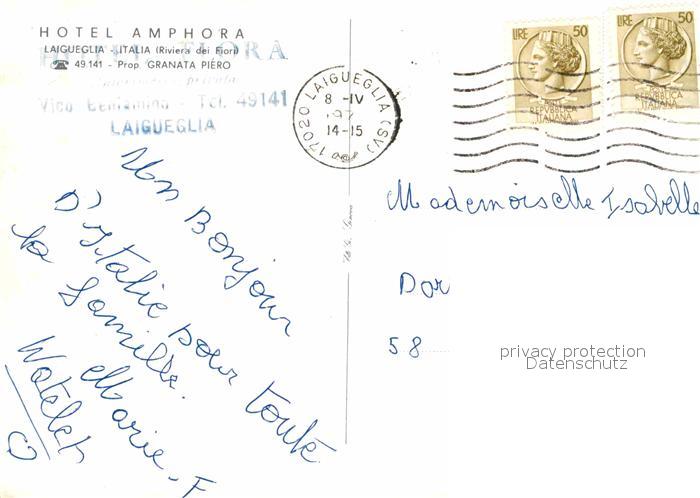 HOTEL AMPHORA
LAIGUEGLIA - ITALIA (Riviera dei Fiori)
☎ 49.141 - Prop. GRANATA PIÉRO
Tel. 49141
LAIGUEGLIA
17020 LAIGUEGLIA (SV)
8 -IV
197
14-15
LIRE 50
REPVBBLICA
ITALIANA
LIRE 50
REPVBBLICA
ITALIANA
Un Bonjour
D'Italie pour toute
la famille.
Marie. F
Watelet
Mademoiselle Isabelle
Dor
58
privacy protection
Datenschutz